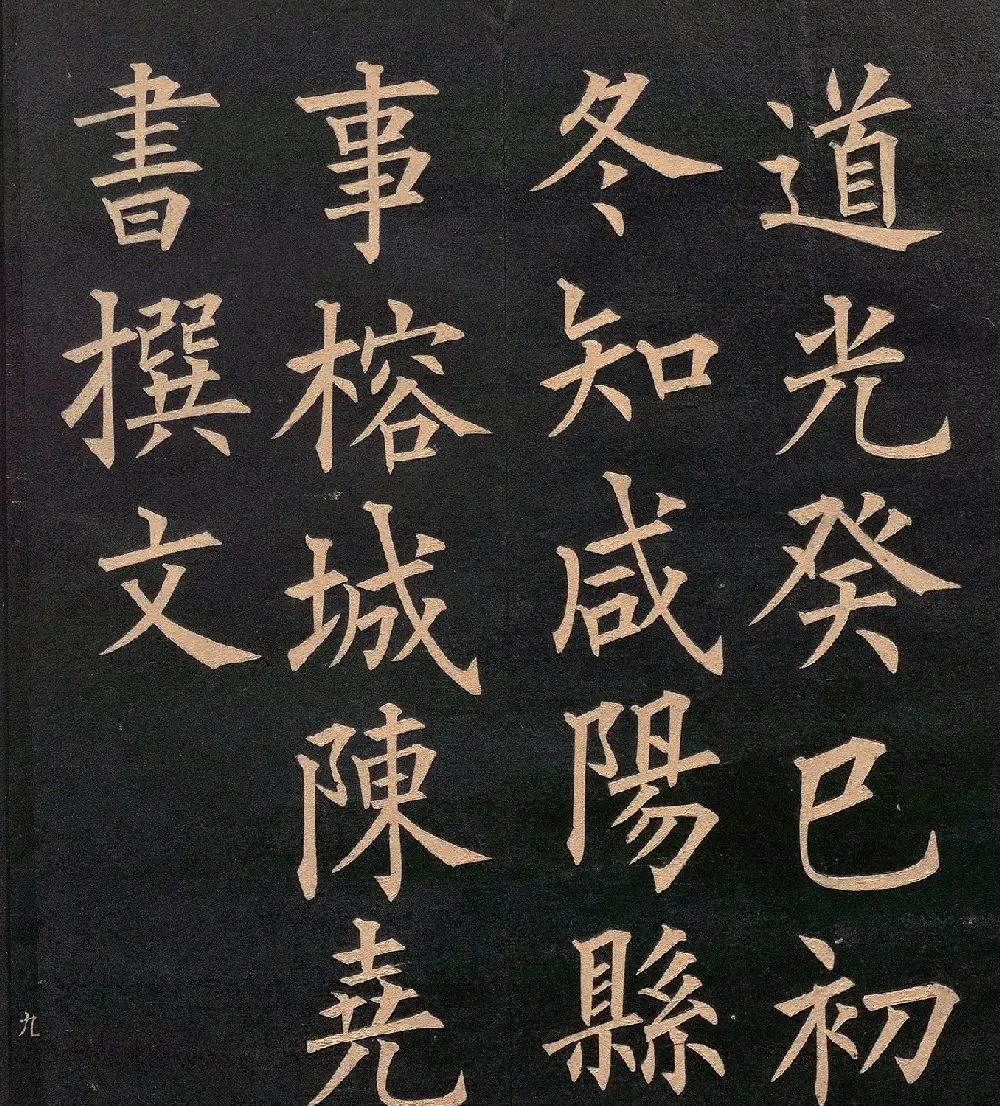 道光癸巳初
冬知咸陽縣
事榕城陳堯
書撰文
九